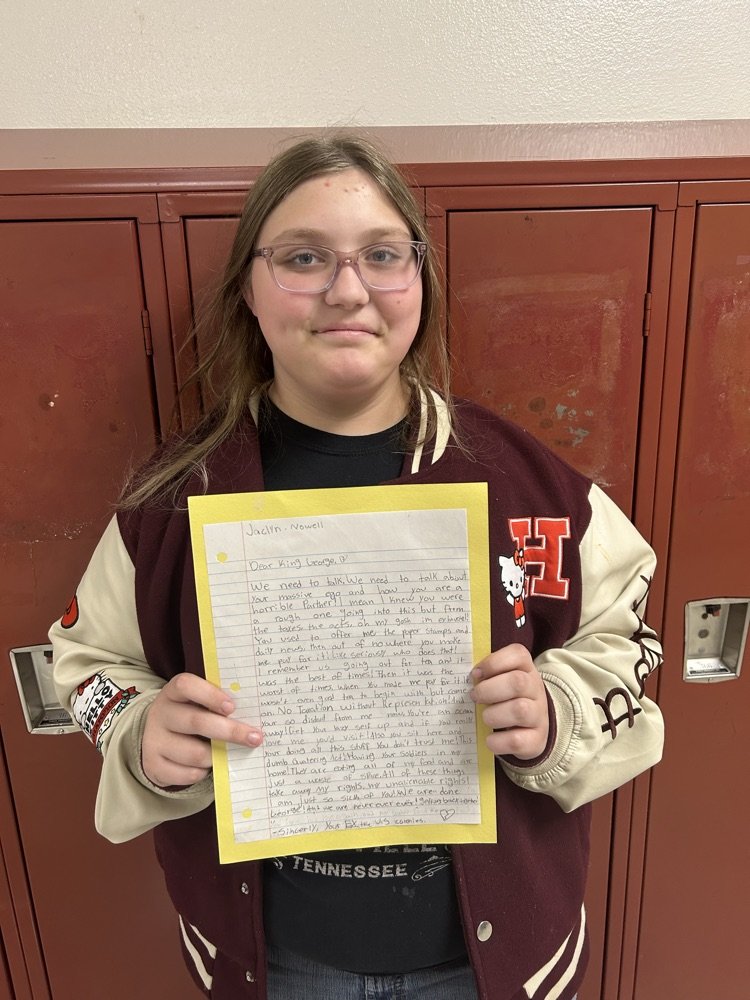 Jaclyn Nowell
Dear King George,
We need to talk. We need to talk about
Your massive ego and how you are a
horrible Partner! I mean I knew you were
a rough one going into this but from
the taxes, the acts, oh my gosh im exhausted!
You used to offer me the paper stamps and
daily news, then out of nowhere you make
me pay for it like seriously who does that!
I remember us going out for tea and it
was the best of times! Then it was the
worst of times when you made me pay for it
wasn't even good tea to begin with but come
on. No Taxation Without Representation! And
Your so distant from me
away! Get Your
love me you'd visit! Also you sit here and
doing all this stuff You don't trust me! This
dumb Quatering Act! Having Your Soldiers in my
home! They are eating all of my food and are
just a waste of space. All of these things
take away My rights, my unalienable rights!
I am just so sick of You! We are done
George! And we are never ever ever! getting back together
-Sincerely, Your Ex the U.S colonies.
H
HELLO
TENNESSEE